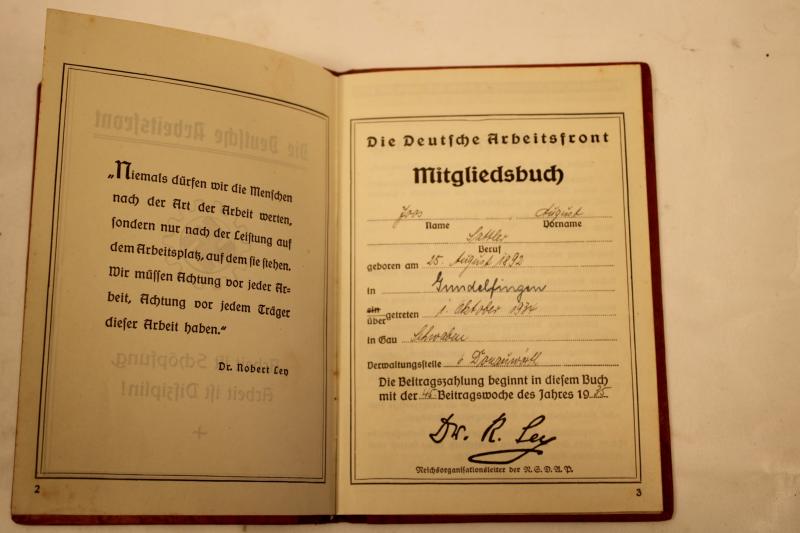 „Niemals dürfen wir die Menschen
nach der Art der Arbeit werten,
sondern nur nach der Leistung auf
dem Arbeitsplatz, auf dem sie stehen.
Wir müssen Achtung vor jeder Ar-
beit, Achtung vor jedem Träger
dieser Arbeit haben.“
Dr. Robert Ley
2
Die Deutsche Arbeitsfront
Mitgliedsbuch
Joos, August
Name Vorname
Sattler
Beruf
geboren am 25. August 1892
in Gundelfingen
ein
über getreten 1. Oktober 1934
in Gau Schwaben
Verwaltungsstelle Donauwörth
Die Beitragszahlung beginnt in diesem Buch
mit der Beitragswoche des Jahres 1935
Dr. R. Ley
Reichsorganisationsleiter der N.S.D.A.P.
3